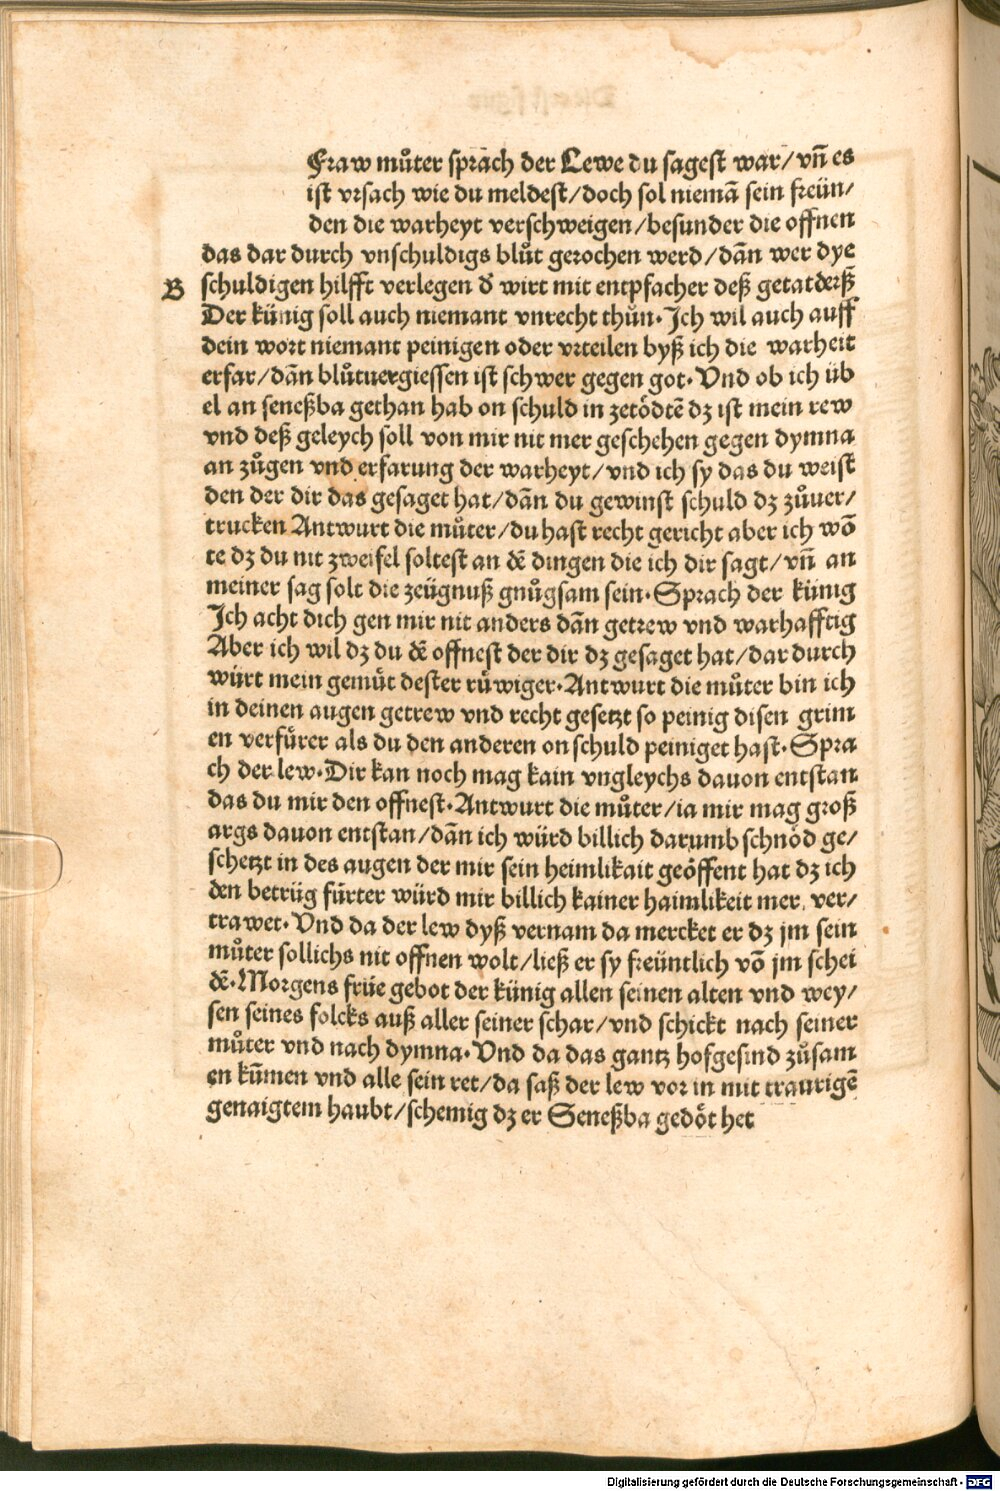 Fraw můter sprach der Lewe du sagest war/vn̄ es
ist vrsach wie du meldest/doch sol niemā sein freün/
den die warheyt verschweigen/besunder die offnen
das dar durch vnschuldigs blůt gerochen werd/dān wer dye
B schuldigen hilfft verlegen d̕ wirt mit entpfacher deß getat derß
Der künig soll auch niemant vnrecht thůn. Ich wil auch auff
dein wort niemant peinigen oder vrteilen byß ich die warheit
erfar/dān blůtuergiessen ist schwer gegen got. Vnd ob ich üb
el an seneßba gethan hab on schuld in zetödtē dz ist mein rew
vnd deß geleych soll von mir nit mer geschehen gegen dymna
an zůgen vnd erfarung der warheyt/vnd ich sy das du weist
den der dir das gesaget hat/dān du gewinst schuld dz zůuer/
trucken Antwurt die můter/du hast recht gericht aber ich wō
te dz du nit zweifel soltest an dē dingen die ich dir sagt/vn̄ an
meiner sag solt die zeügnuß gnůgsam sein. Sprach der künig
Ich acht dich gen mir nit anders dān getrew vnd warhafftig
Aber ich wil dz du dē offnest der dir dz gesaget hat/dar durch
würt mein gemüt dester rüwiger. Antwurt die můter bin ich
in deinen augen getrew vnd recht gesetzt so peinig disen grim
en verfürer als du den anderen on schuld peiniget hast. Spra
ch der lew. Dir kan noch mag kain vngleychs dauon entstan
das du mir den offnest. Antwurt die můter/ia mir mag groß
args dauon entstan/dān ich würd billich darumb schnöd ge/
schetzt in des augen der mir sein heimlikait geöffent hat dz ich
den betrüg fürter würd mir billich kainer haimlikeit mer ver/
trawet. Vnd da der lew dyß vernam da mercket er dz jm sein
můter sollichs nit offnen wolt/ließ er sy freüntlich vō jm schei
dē. Morgens früe gebot der künig allen seinen alten vnd wey/
sen seines folcks auß aller seiner schar/vnd schickt nach seiner
můter vnd nach dymna. Vnd da das gantz hofgesind zůsam
en kūmen vnd alle sein ret/da saß der lew vor in mit traurigē
genaigtem haubt/schemig dz er Seneßba gedöt het
Digitalisierung gefördert durch die Deutsche Forschungsgemeinschaft - DFG